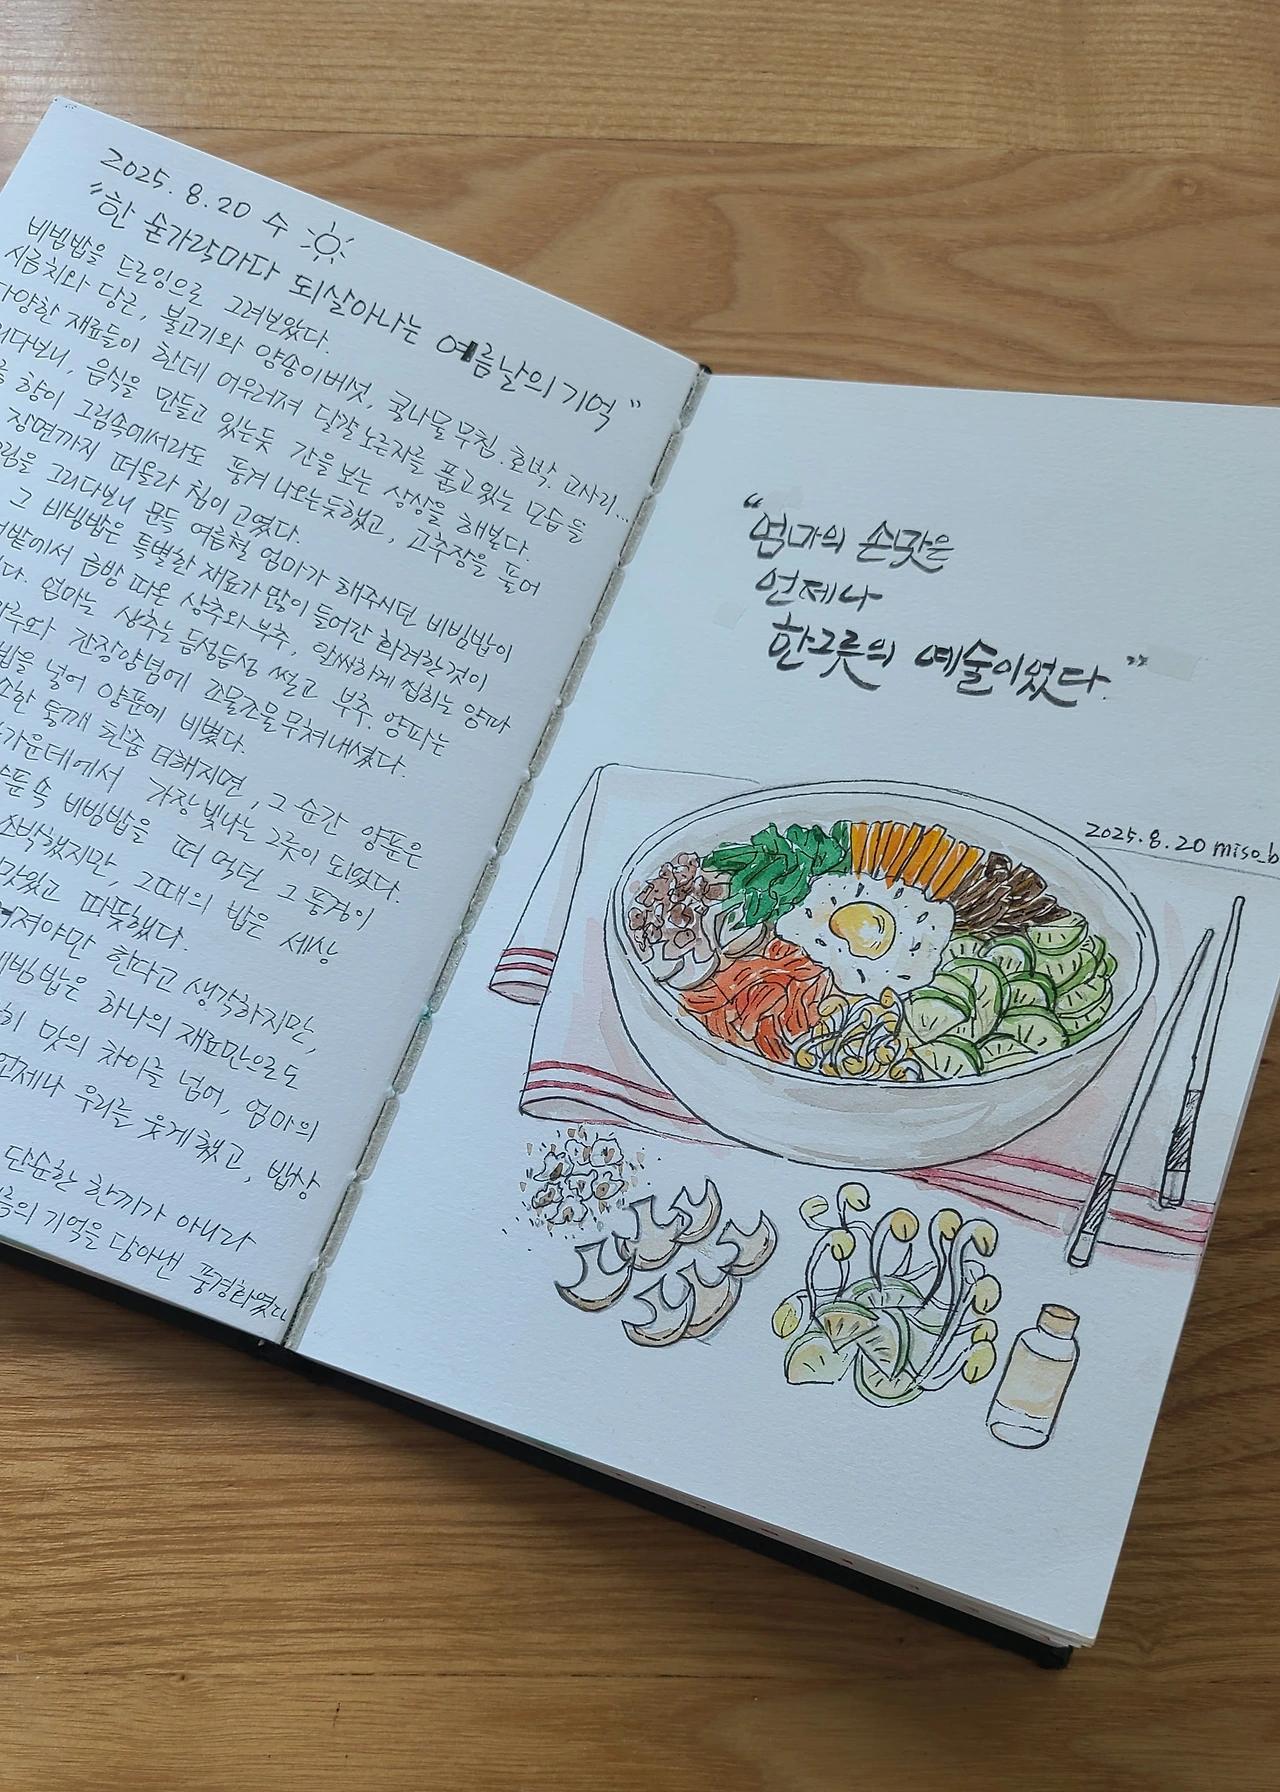 2025. 8. 20 수
"한 숟가락마다 되살아나는 여름날의 기억"
비빔밥을 드로잉으로 그려보았다.
시금치와 당근, 불고기와 양송이버섯, 콩나물무침. 호박. 고사리...
다양한 재료들이 한데 어우러져 달걀 노른자를 품고 있는 모습을
음식을 만들고 있는듯 간을 보는 상상을 해본다.
향이 그림속에서라도 풍겨 나오는듯했고, 고추장을 풀어
장면까지 떠올라 침이 고였다.
그리다보니 문득 여름철 엄마가 해주시던 비빔밥이
그 비빔밥은 특별한 재료가 많이 들어간 화려한것이
금방 따온 상추와 부추, 알싸하게 씹히는 양파
엄마는 상추는 듬성듬성 썰고 부추. 양파는
간장양념에 조물조물 무쳐내셨다.
넣어 양푼에 비볐다.
통깨 한줌 더해지면, 그 순간 양푼은
가운데에서 가장 빛나는 그릇이 되었다.
속 비빔밥을 떠 먹던 그 풍경이
소박했지만, 그때의 밥은 세상
맛있고 따뜻했다.
한다고 생각하지만,
비빔밥은 하나의 재료만으로도
맛의 차이를 넘어, 엄마의
언제나 우리를 웃게 했고, 밥상
단순한 한끼가 아니라
기억을 담아낸 풍경화였다
"엄마의 손맛은
언제나
한그릇의 예술이었다."
2025.8.20 miso_b